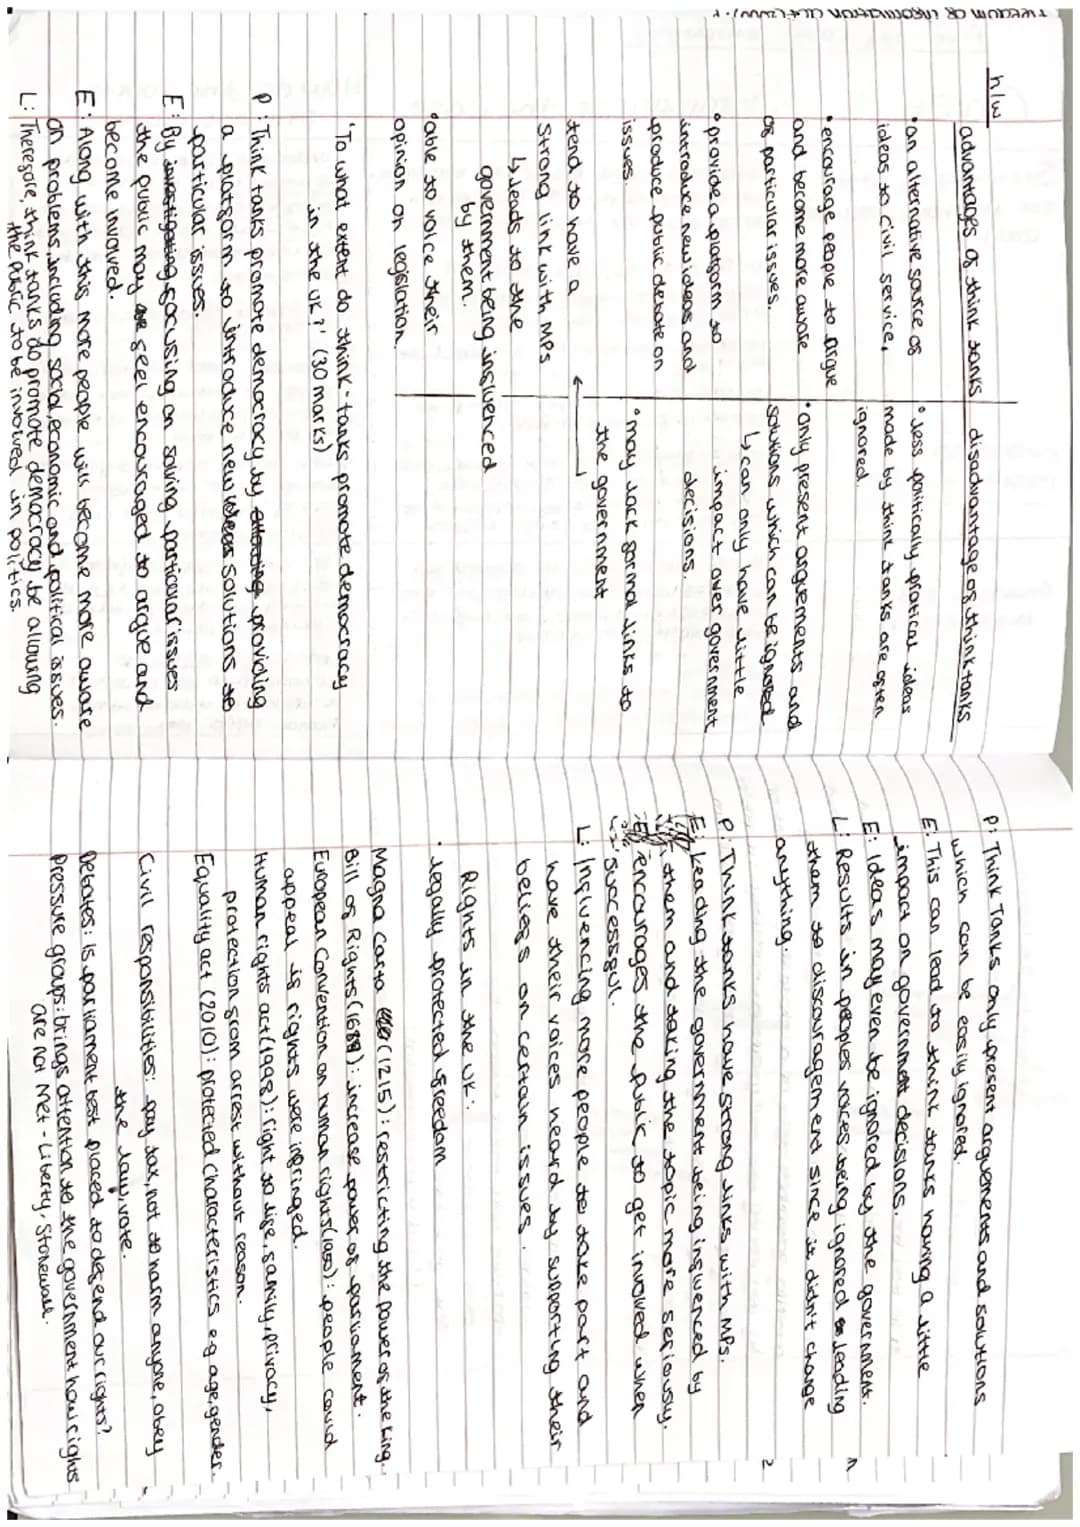 h/w
advantages of think tanks
• an alternative source of
ideas to civil service.
• encourage people to argue
and become more aware
of particular issues.
• provide a platform to
introduce new ideas and
produce public debate on
issues.
tend to have a
strong link with MPs
↳ leads to the
government being influenced
by them.
• able to voice their
opinion on legislation.
disadvantage of think tanks
• less politically pratical ideas
made by think tanks are often
ignored.
• only present arguements and
solutions which can be ignored
↳ can only have little
impact over government
decisions.
• may lack formal links to
the government
'To what extent do think-tanks promote democracy
in the UK?' (30 marks)
P: Think tanks promote democracy by providing
a platform to introduce new ideas solutions to
particular issues.
E: By investigating focusing on solving particular issues
the public may feel encouraged to argue and
become involved.
E: Along with this more people will become more aware
on problems, including social, economic and political issues.
L: Therefore, think tanks do promote democracy be allowing
the public to be involved in politics.
P: Think Tanks only present arguements and solutions
which can be easily ignored.
E: This can lead to think tanks having a little
impact on government decisions.
E: Ideas may even be ignored by the government.
L: Results in peoples voices being ignored leading
them to discouragement since it didn't change
anything.
P: Think tanks have strong links with MPs.
E: Leading the government being influenced by
them and taking the topic more seriously.
E: encourages the public to get involved when
successful.
L: Influencing more people to take part and
have their voices heard by supporting their
beliefs on certain issues.
Rights in the UK:
• legally protected freedom
Magna Carta (1215): restricting the power of the king.
Bill of Rights (1689): increase power of parliament.
European Convention on human rights (1950): people could
appeal is rights were infringed.
Human rights act (1998): right to life, family, privacy,
protection from arrest without reason.
Equality act (2010): protected characteristics e.g age, gender.
Civil responsibilities: pay tax, not to harm anyone, obey
the law, vote.
Debates: is parliament best placed to defend our rights?
Pressure groups: brings attention to the government how rights
are not met - Liberty, Stonewall.